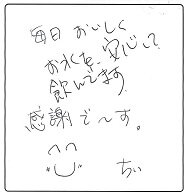 毎日おいしく
お水を、安心して
飲んでます。
感謝で〜す。